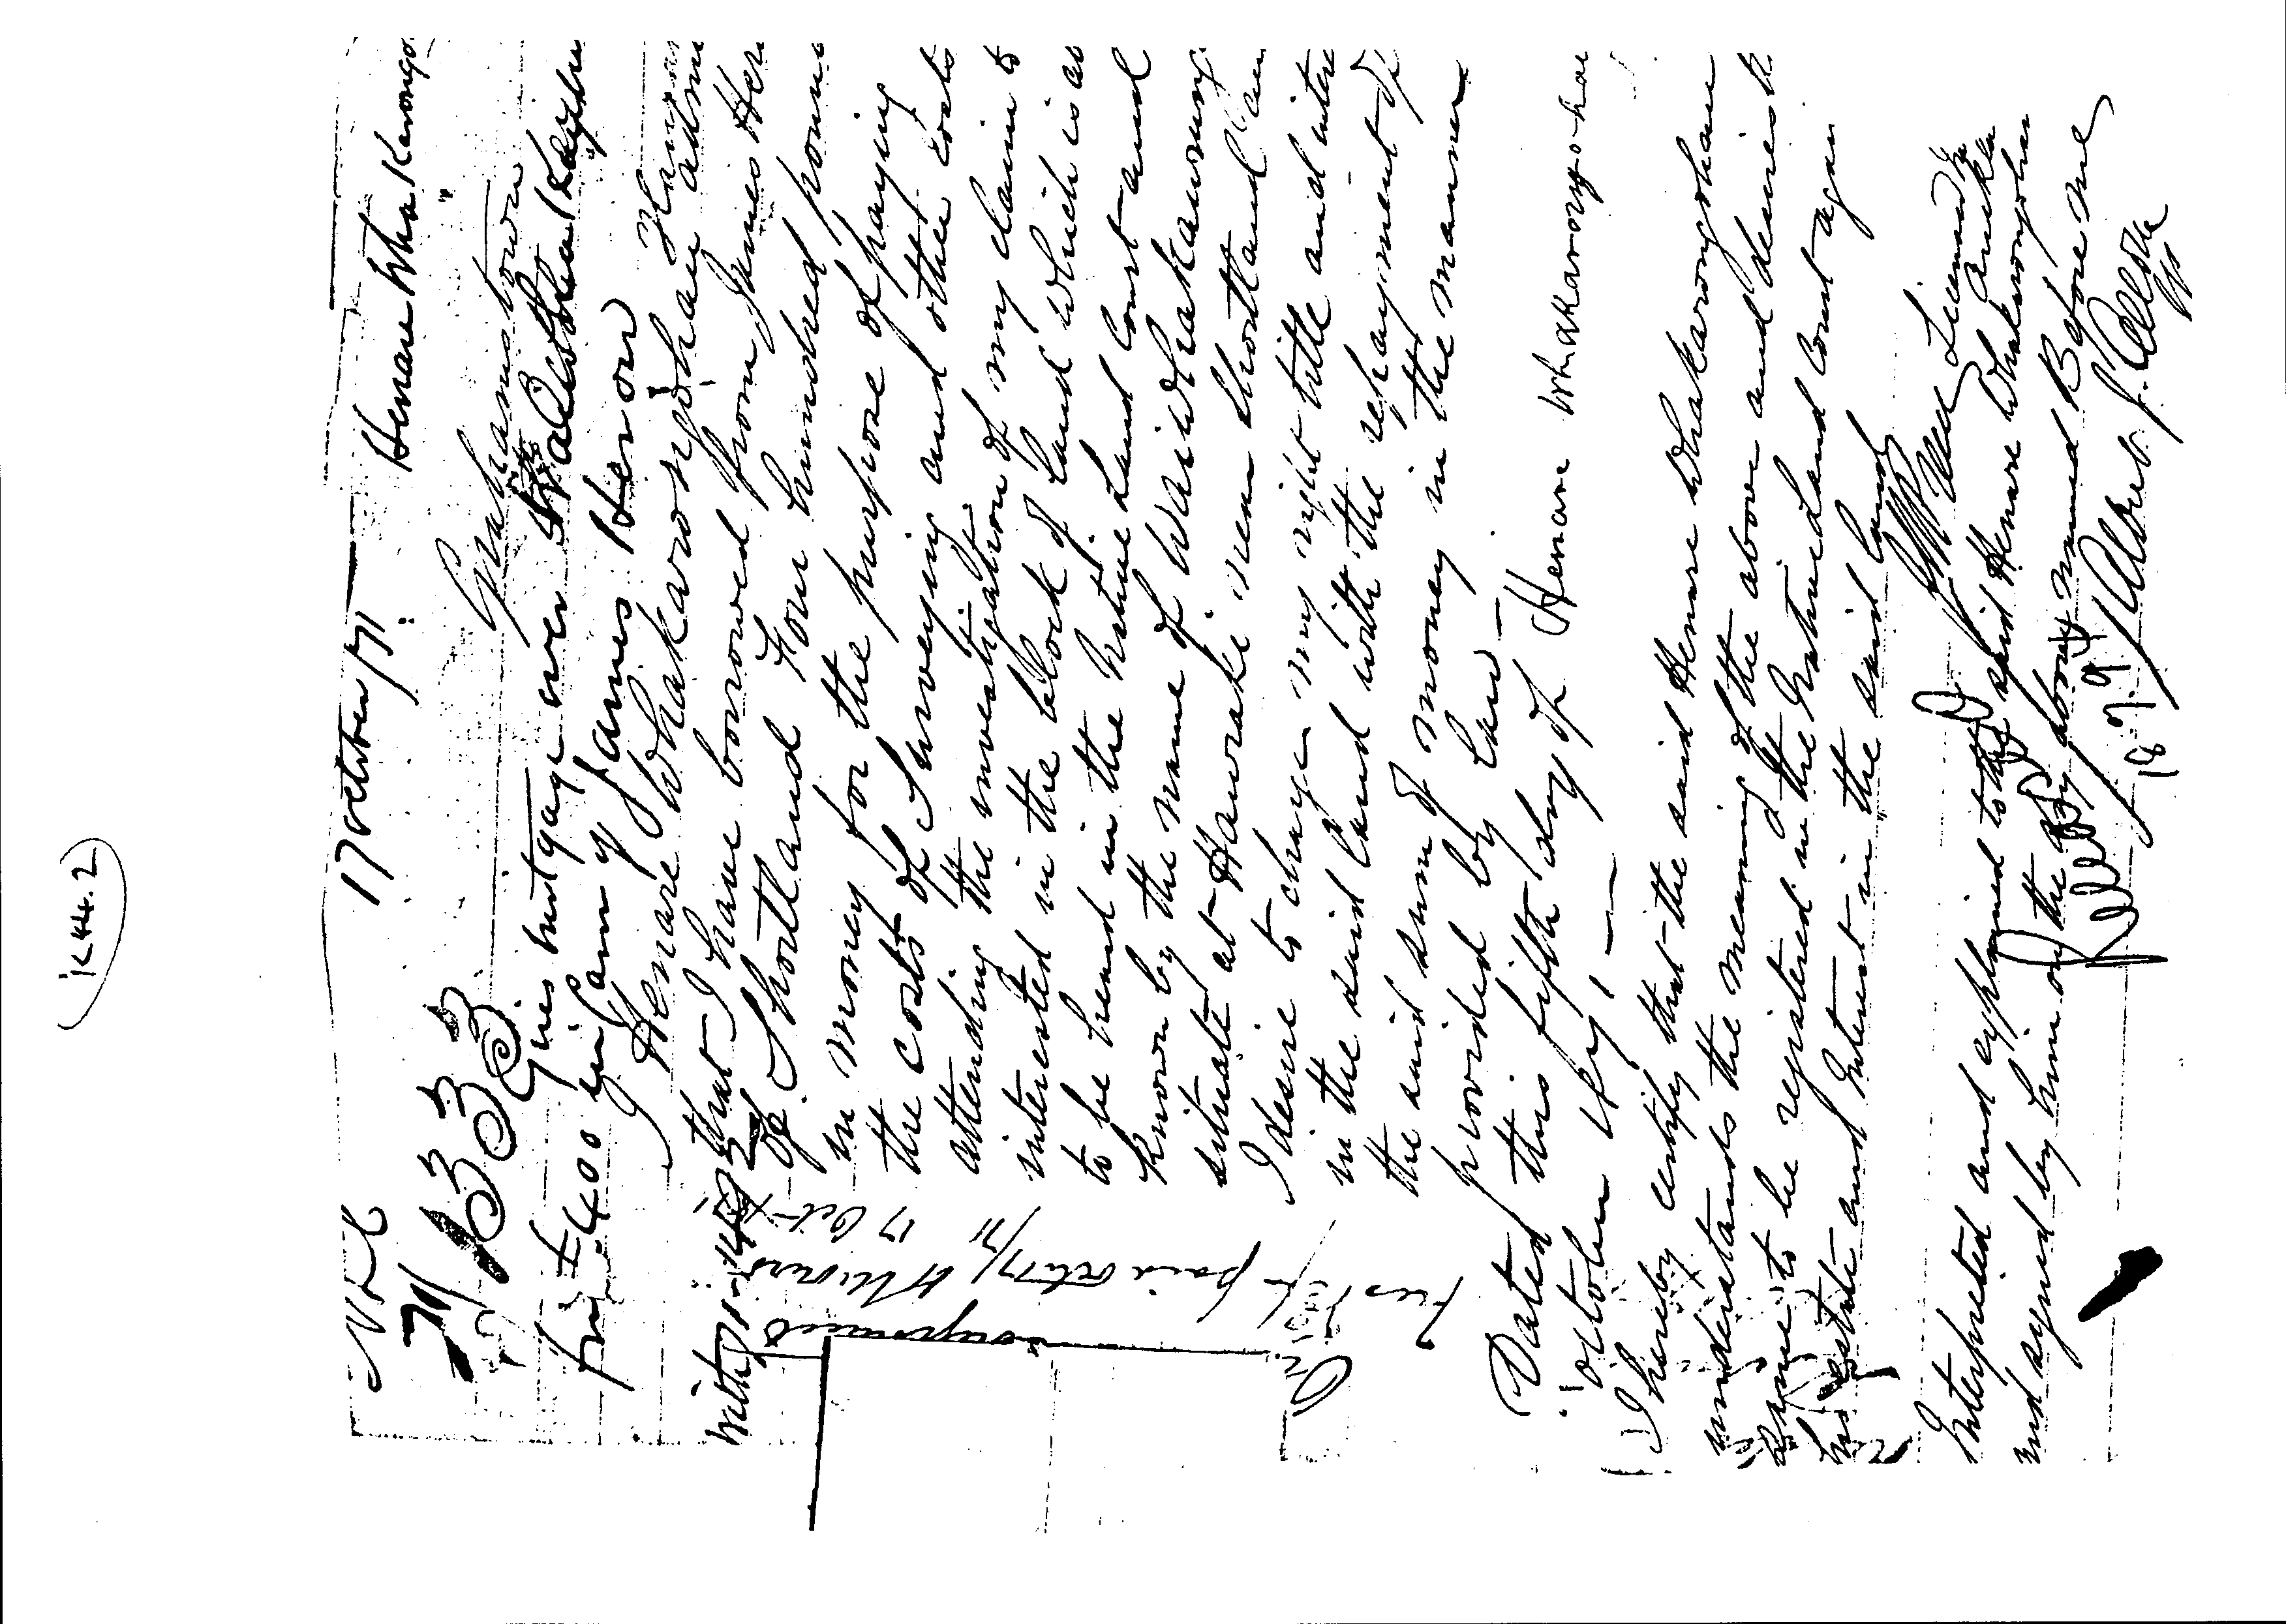 K44.2
NLC
17 October 71
Henare Whakarongo
71/1333
Grahamstown
Gives mortgage over
for £400 in favour of James Heron
I Henare Whakarongohau
that I have borrowed from James Her
of Shortland Four hundred poun
in money for the purpose of paying
the costs of Surveying and other costs
attending the investigation of my claim to
interested in the block of land which is ab
to be heard in the Native Land Court and
known by the name of Waiwhakaurunga
situate at Hauraki near Shortland an
I desire to charge my right title and inter
in the said land with the repayment of
the said sum of money in the manner
provided by law —
Dated this fifth day of
October 1871 —
Henare Whakarongohau
I hereby certify that the said Henare Whakarongohau
understands the meaning of the above and desires th
same to be registered in the Native Land Court again
his estate and Interest in the said land
Licensed
Interpreted and explained to the said Henare Whakarongohau
and signed by him on the day above named Before me
Albert J. Allom
JP
Fees paid
17 Oct